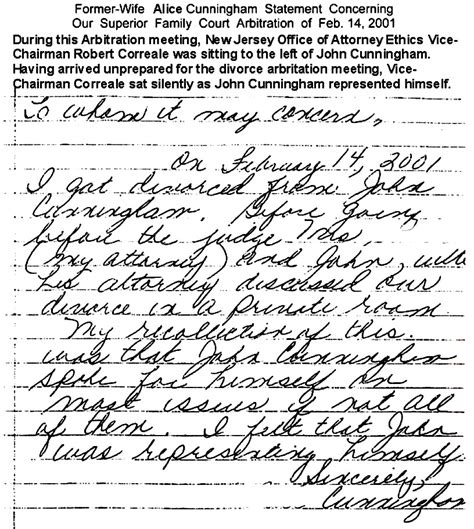 Former-Wife Alice Cunningham Statement Concerning
Our Superior Family Court Arbitration of Feb. 14, 2001
During this Arbitration meeting, New Jersey Office of Attorney Ethics Vice-
Chairman Robert Correale was sitting to the left of John Cunningham.
Having arrived unprepared for the divorce arbritation meeting, Vice-
Chairman Correale sat silently as John Cunningham represented himself.
To whom it may concern,
On February 14, 2001
I got divorced from John
Cunningham. Before going
before the judge Ms,
(my attorney) and John, with
his attorney discussed our
divorce in a private room
My recollection of this
was that John Cunningham
spoke for himself on
most issues if not all
of them. I felt that John
was representing himself
Sincerely,
Cunningham